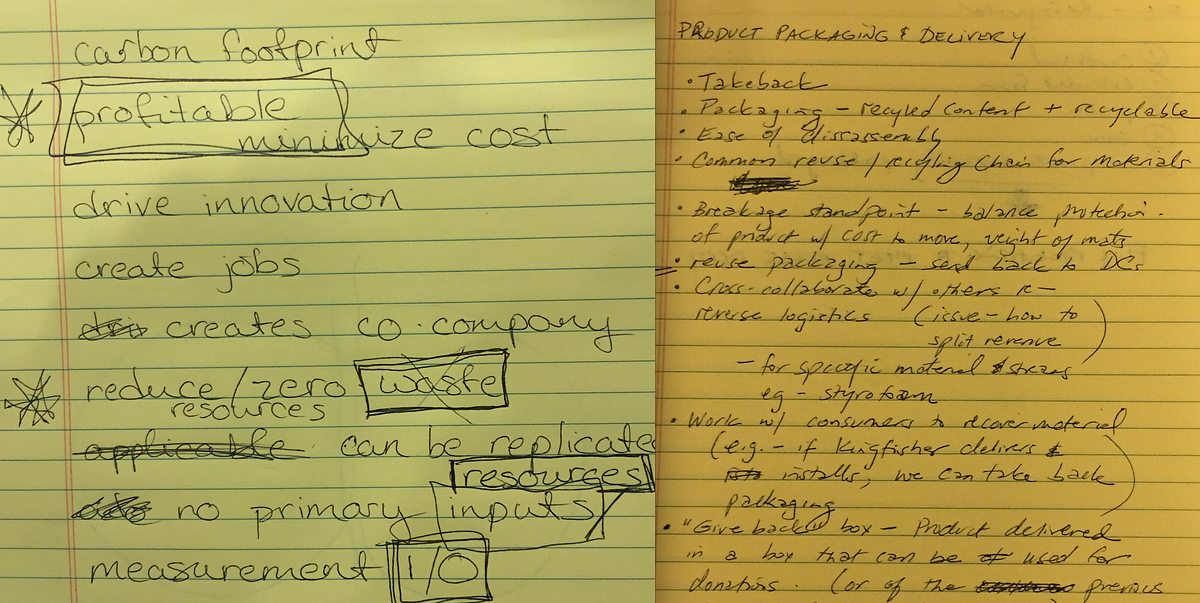 carbon footprint
profitable
minimize cost
drive innovation
create jobs
creates co-company
reduce/zero waste
resources
applicable can be replicated
resources
no primary inputs
measurement I/O
PRODUCT PACKAGING & DELIVERY
• Takeback
• Packaging - recyled content + recyclable
• Ease of dissassembly
• Common reuse / recycling chain for materials
• Breakage standpoint - balance protection
of product w/ cost to move, weight of mats
• reuse packaging - send back to DCs
• Cross-collaborate w/ others re-
reverse logistics (issue - how to
split revenue
- for specific material
eg - styrofoam
• Work w/ consumers to recover material
(e.g. - if Kingfisher delivers &
installs, we can take back
packaging
• "Give back" box - Product delivered
in a box that can be used for
donations. (or of the previous